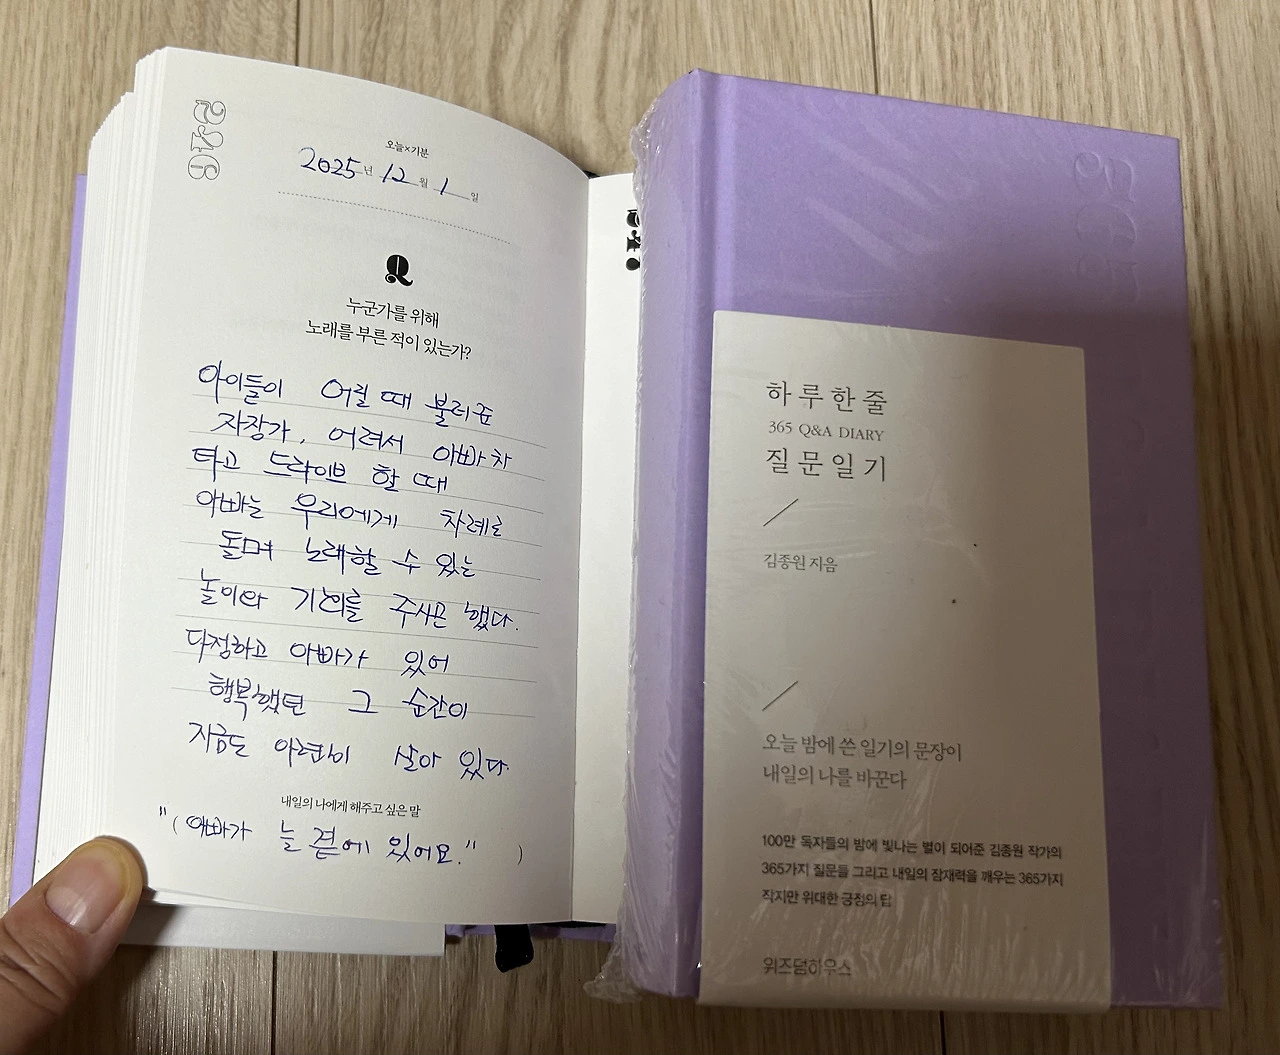 246
오늘×기분
2025년 12월 1일
Q
누군가를 위해
노래를 부른 적이 있는가?
아이들이 어릴 때 불러준
자장가, 어려서 아빠차
타고 드라이브 할 때
아빠는 우리에게 차례로
돌며 노래할 수 있는
놀이와 기회를 주시곤 했다.
다정하고 아빠가 있어
행복했던 그 순간이
지금도 아련히 살아 있다.
내일의 나에게 해주고 싶은 말
"( 아빠가 늘 곁에 있어요." )
247
365
하루 한 줄
365 Q&A DIARY
질문 일기
김종원 지음
오늘 밤에 쓴 일기의 문장이
내일의 나를 바꾼다
100만 독자들의 밤에 빛나는 별이 되어준 김종원 작가의
365가지 질문들 그리고 내일의 잠재력을 깨우는 365가지
작지만 위대한 긍정의 답
위즈덤하우스